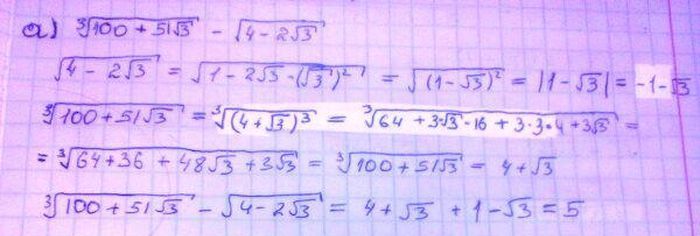 a) ∛(100 + 51√3) - √(4 - 2√3)
√(4 - 2√3) = √(1 - 2√3 - (√3)²) = √((1 - √3)²) = |1 - √3| = -1 - √3
∛(100 + 51√3) = ∛((4 + √3)³) = ∛(64 + 3·√3 · 16 + 3·3·4 + 3√3) =
= ∛(64 + 36 + 48√3 + 3√3) = ∛(100 + 51√3) = 4 + √3
∛(100 + 51√3) - √(4 - 2√3) = 4 + √3 + 1 - √3 = 5